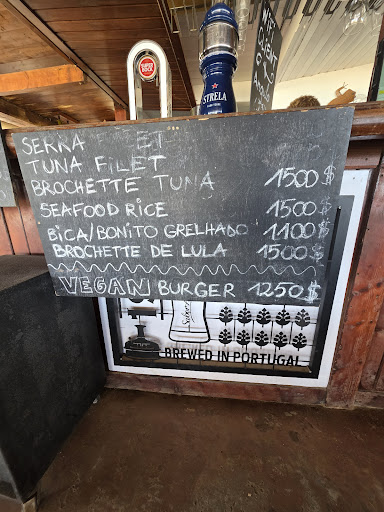 SUPER
BOCK
STRELA
SERRA
TUNA FILET
BROCHETTE TUNA 1500$
SEAFOOD RICE 1500$
BICA/BONITO GRELHADO 1100$
BROCHETTE DE LULA 1500$
VEGAN BURGER 1250$
BREWED IN PORTUGAL